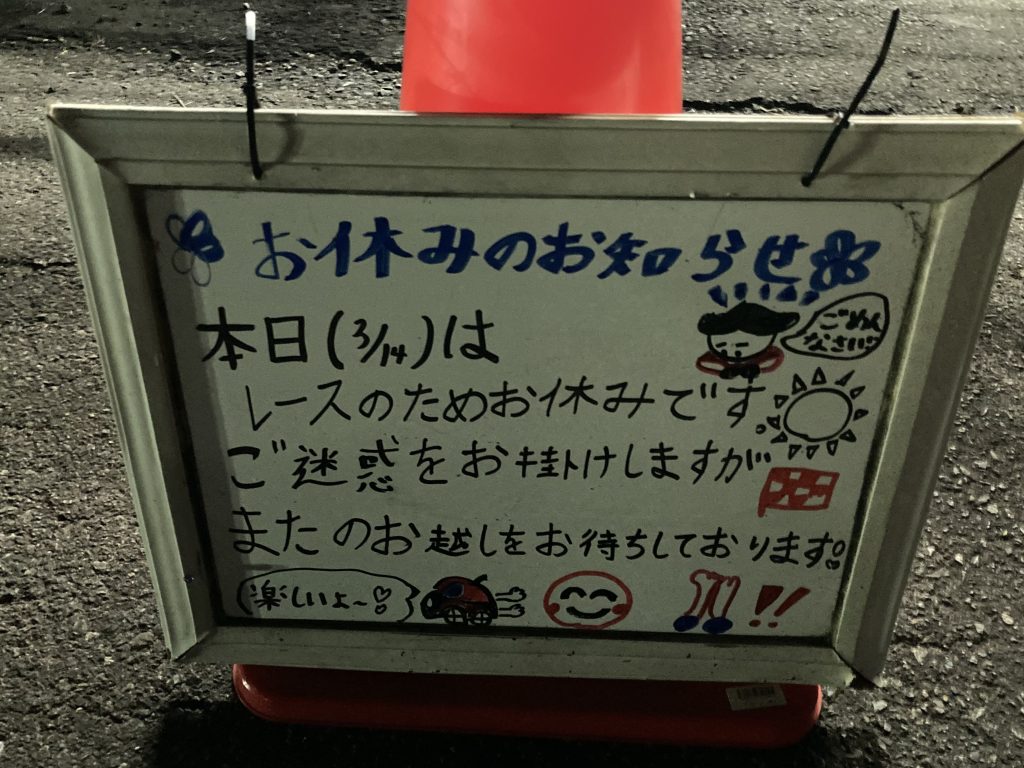 お休みのお知らせ
本日(3/14)は
ごめん
なさい
レースのためお休みです。
ご迷惑をお掛けしますが
またのお越しをお待ちしております。
楽しいよ～♡
!!